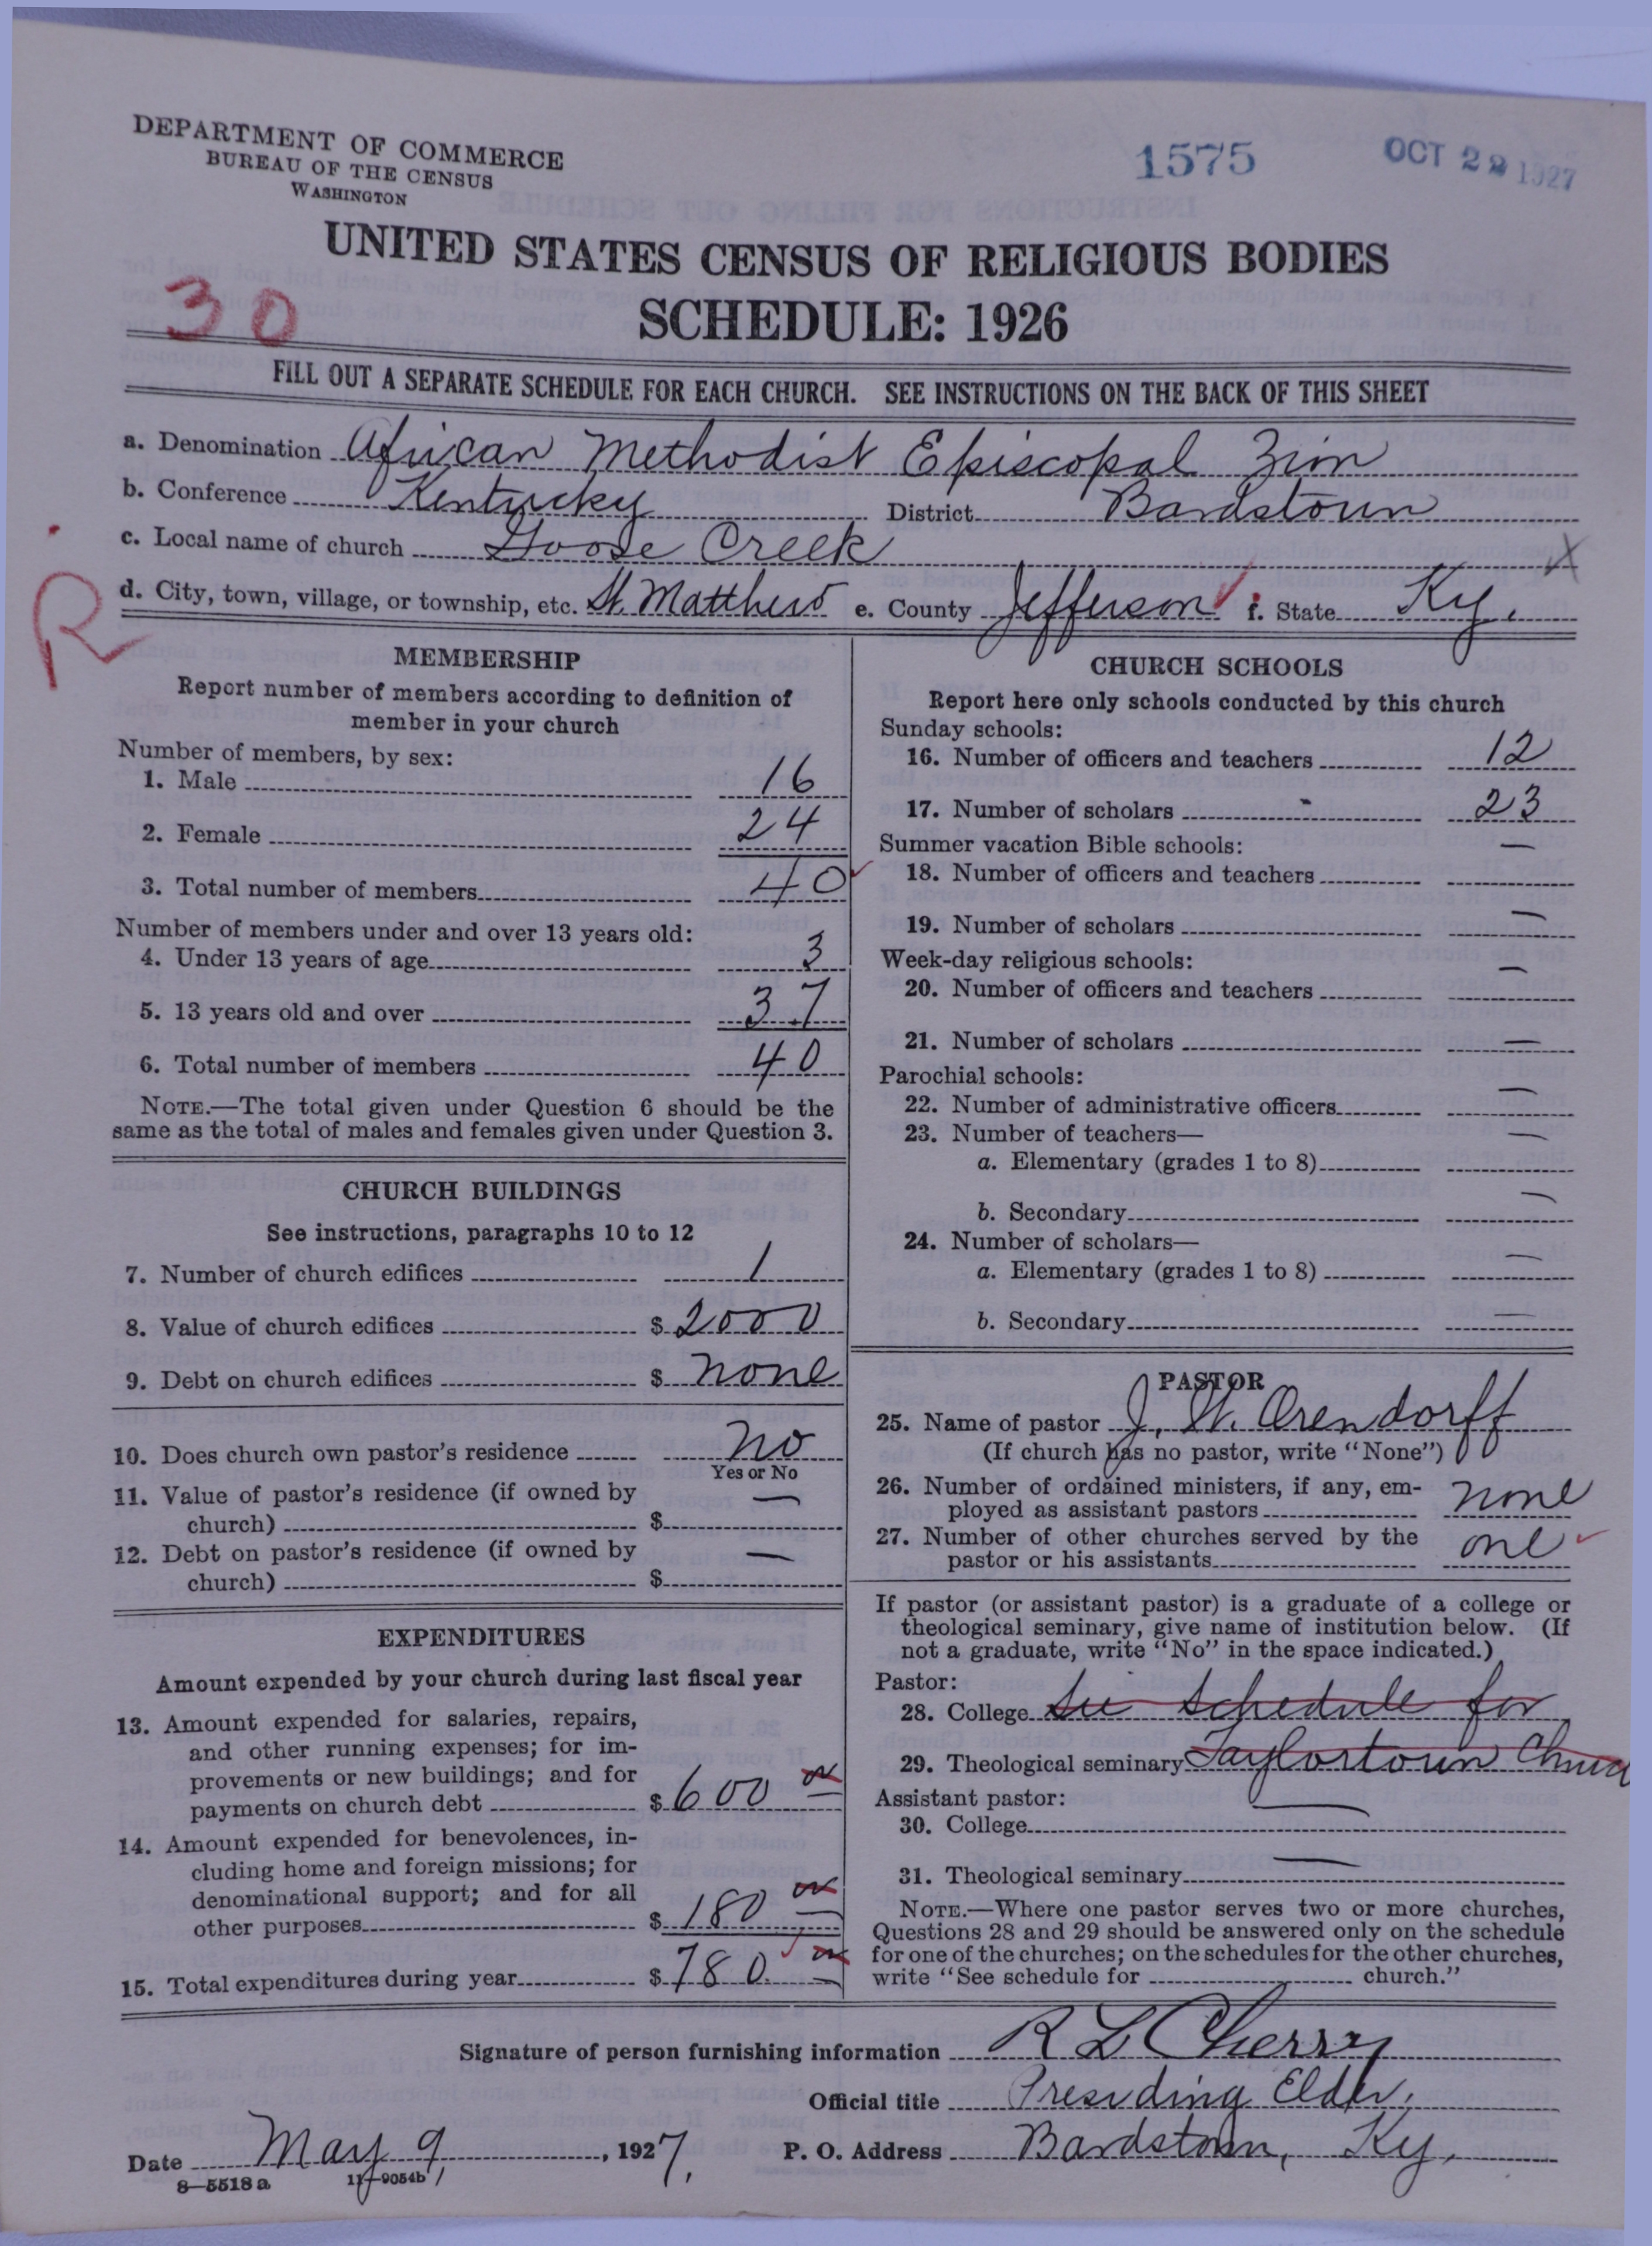 DEPARTMENT OF COMMERCE
BUREAU OF THE CENSUS
WASHINGTON
1575
OCT 22 1927
UNITED STATES CENSUS OF RELIGIOUS BODIES
30
SCHEDULE: 1926
FILL OUT A SEPARATE SCHEDULE FOR EACH CHURCH. SEE INSTRUCTIONS ON THE BACK OF THIS SHEET
a. Denomination African Methodist Episcopal Zion
b. Conference Kentucky District Bardstown
c. Local name of church Goose Creek X
R
d. City, town, village, or township, etc. St. Matthews e. County Jefferson f. State Ky.
MEMBERSHIP
Report number of members according to definition of
member in your church
Number of members, by sex:
1. Male 16
2. Female 24
3. Total number of members 40
Number of members under and over 13 years old:
4. Under 13 years of age 3
5. 13 years old and over 37
6. Total number of members 40
NOTE.—The total given under Question 6 should be the
same as the total of males and females given under Question 3.
CHURCH BUILDINGS
See instructions, paragraphs 10 to 12
7. Number of church edifices 1
8. Value of church edifices $ 2000
9. Debt on church edifices $ none
10. Does church own pastor's residence no
Yes or No
11. Value of pastor's residence (if owned by —
church) $
12. Debt on pastor's residence (if owned by —
church) $
EXPENDITURES
Amount expended by your church during last fiscal year
13. Amount expended for salaries, repairs,
and other running expenses; for im-
provements or new buildings; and for
payments on church debt $ 600 00
14. Amount expended for benevolences, in-
cluding home and foreign missions; for
denominational support; and for all
other purposes $ 180 00
15. Total expenditures during year $ 780. 00
CHURCH SCHOOLS
Report here only schools conducted by this church
Sunday schools:
16. Number of officers and teachers 12
17. Number of scholars 23
Summer vacation Bible schools:
18. Number of officers and teachers —
19. Number of scholars —
Week-day religious schools:
20. Number of officers and teachers —
21. Number of scholars —
Parochial schools:
22. Number of administrative officers —
23. Number of teachers—
a. Elementary (grades 1 to 8) —
b. Secondary —
24. Number of scholars—
a. Elementary (grades 1 to 8) —
b. Secondary —
PASTOR
25. Name of pastor J. W. Orendorff
(If church has no pastor, write "None")
26. Number of ordained ministers, if any, em-
ployed as assistant pastors none
27. Number of other churches served by the
pastor or his assistants one
If pastor (or assistant pastor) is a graduate of a college or
theological seminary, give name of institution below. (If
not a graduate, write "No" in the space indicated.)
Pastor:
28. College See schedule for
29. Theological seminary Taylortown Church
Assistant pastor:
30. College —
31. Theological seminary —
NOTE.—Where one pastor serves two or more churches,
Questions 28 and 29 should be answered only on the schedule
for one of the churches; on the schedules for the other churches,
write "See schedule for church."
Signature of person furnishing information R L Cherry
Official title Presiding Elder.
Date May 9, 1927. P. O. Address Bardstown, Ky.
8—5518 a 11—9054b